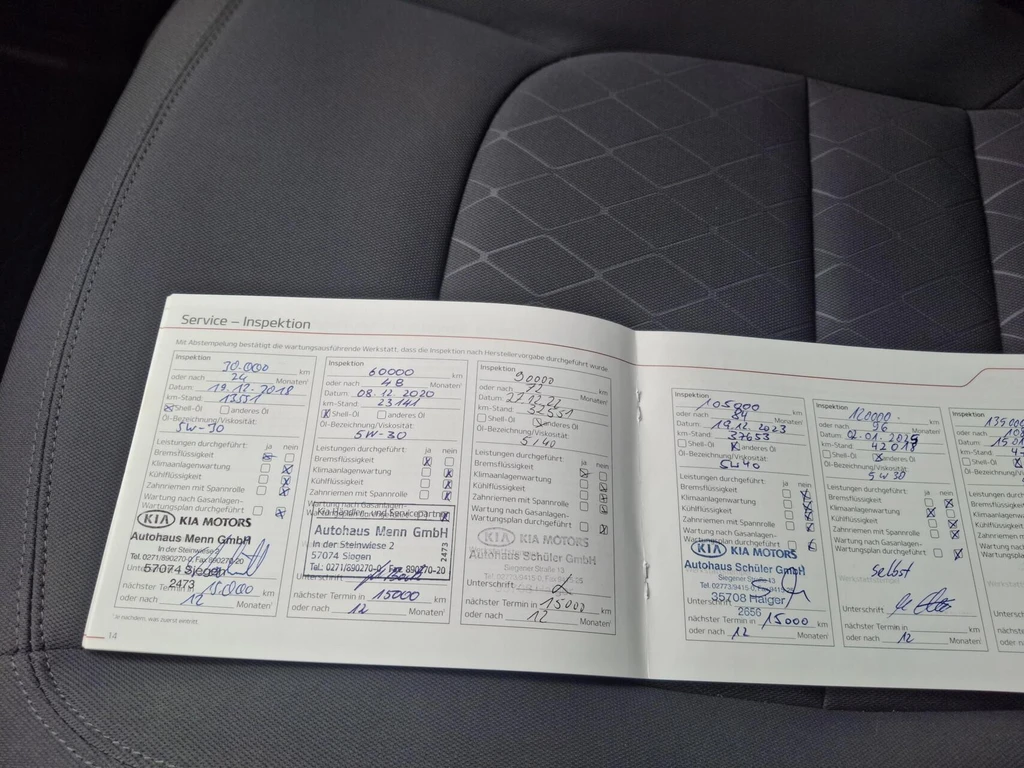 Service – Inspektion
Mit Abstempelung bestätigt die wartungsausführende Werkstatt, dass die Inspektion nach Herstellervorgabe durchgeführt wurde
Inspektion
30.000 km
oder nach 24 Monaten¹
Datum: 19.12.2018
km-Stand: 13551
Shell-Öl anderes Öl
Öl-Bezeichnung/Viskosität:
5W-30
Leistungen durchgeführt: ja nein
Bremsflüssigkeit
Klimaanlagenwartung
Kühlflüssigkeit
Zahnriemen mit Spannrolle
Wartung nach Gasanlagen-
KIA KIA MOTORS
Autohaus Menn GmbH
In der Steinwiese 2
Tel. 0271/890270-0, Fax 890270-20
57074 Siegen
2473
nächster Termin in 15.000 km
oder nach 12 Monaten¹
¹Je nachdem, was zuerst eintritt
14
Inspektion
60000 km
oder nach 48 Monaten¹
Datum: 08.12.2020
km-Stand: 23141
Shell-Öl anderes Öl
Öl-Bezeichnung/Viskosität:
5W-30
Leistungen durchgeführt: ja nein
Bremsflüssigkeit
Klimaanlagenwartung
Kühlflüssigkeit
Zahnriemen mit Spannrolle
Wartung nach Gasanlagen-
Kia-Händler und Servicepartner
Autohaus Menn GmbH
In der Steinwiese 2
57074 Siegen
Tel.: 0271/890270-0, Fax 890270-20
2473
Unterschrift
nächster Termin in 15000 km
oder nach 12 Monaten¹
Inspektion
90000 km
oder nach 72 Monaten¹
Datum: 27.12.22
km-Stand: 32551
Shell-Öl anderes Öl
Öl-Bezeichnung/Viskosität:
5/40
Leistungen durchgeführt: ja nein
Bremsflüssigkeit
Klimaanlagenwartung
Kühlflüssigkeit
Zahnriemen mit Spannrolle
Wartung nach Gasanlagen-
Wartungsplan durchgeführt
KIA KIA MOTORS
Autohaus Schüler GmbH
Siegener Straße 13
Unterschrift
nächster Termin in 15000 km
oder nach 12 Monaten¹
Inspektion
105000 km
oder nach 84 Monaten¹
Datum: 19.12.2023
km-Stand: 37653
Shell-Öl anderes Öl
Öl-Bezeichnung/Viskosität:
5W40
Leistungen durchgeführt: ja nein
Bremsflüssigkeit
Klimaanlagenwartung
Kühlflüssigkeit
Zahnriemen mit Spannrolle
Wartung nach Gasanlagen-
KIA KIA MOTORS
Autohaus Schüler GmbH
Siegener Straße 13
35708 Haiger
2656
nächster Termin in 15000 km
oder nach 12 Monaten¹
Inspektion
120000 km
oder nach 96 Monaten¹
Datum: 02.01.2025
km-Stand: 42018
Shell-Öl anderes Öl
Öl-Bezeichnung/Viskosität:
5W30
Leistungen durchgeführt: ja nein
Bremsflüssigkeit
Klimaanlagenwartung
Kühlflüssigkeit
Zahnriemen mit Spannrolle
Wartung nach Gasanlagen-
Wartungsplan durchgeführt
selbst
Unterschrift
nächster Termin in 15000 km
oder nach 12 Monaten¹
Inspektion
oder nach
Datum:
km-Stand:
Shell-Öl
Öl-Bezeichnung
Leistungen durch
Bremsflüssigkeit
Klimaanlagenwar
Kühlflüssigkeit
Zahnriemen mit
Wartung nach
Wartungsplan
Unterschrift
nächster Termin
oder nach